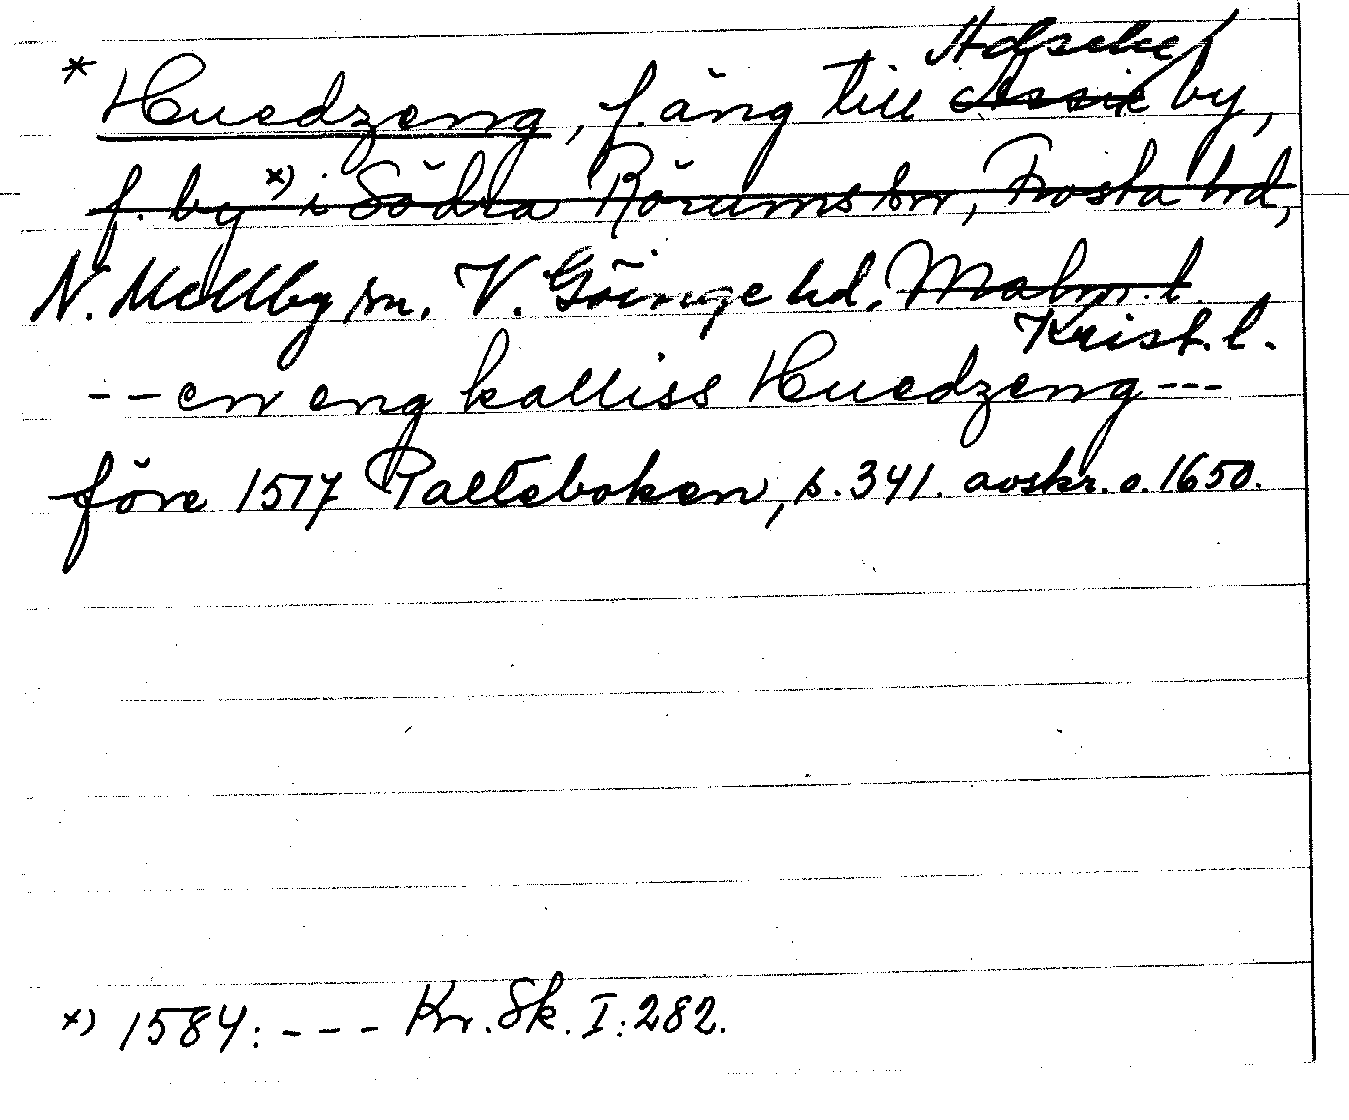 Adseke
* Huedzeng, f. äng till Assie by,
f. by x) i Södra Rörums sn, Frosta hd,
N. Mellby sn. V. Göinge hd. Malm. l.
Krist. l.
- - en eng kalliss Huedzeng - - -
före 1517 Palteboken, s. 341. avskr. o. 1650.
x) 1584: - - - Kr. Sk. I: 282.